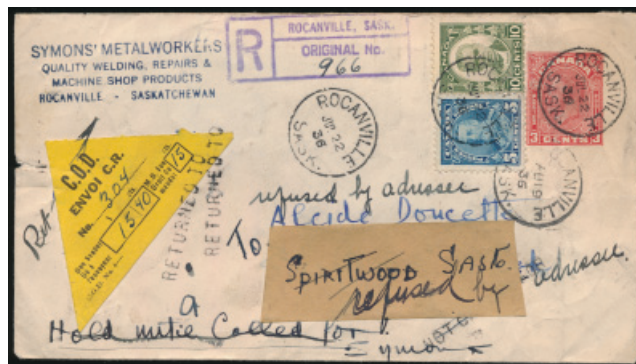 SYMONS' METALWORKERS
QUALITY WELDING, REPAIRS &
MACHINE SHOP PRODUCTS
ROCANVILLE - SASKATCHEWAN
R
ROCANVILLE, SASK.
ORIGINAL No.
966
10 CENTS 10
5 CENTS 5
3 CENTS 3
ROCANVILLE
SASK
36
ROCANVILLE
JUL 22
36
SASK
ROCANVILLE
AU 19
36
SASK
C.O.D.
ENVOI C.R.
No. 304
15.40
15
RETURNED TO
RETURNED TO
refused by adressee
Alcide Doucette
To
SPIRITWOOD SASK.
refused by adressee
Hold until Called for